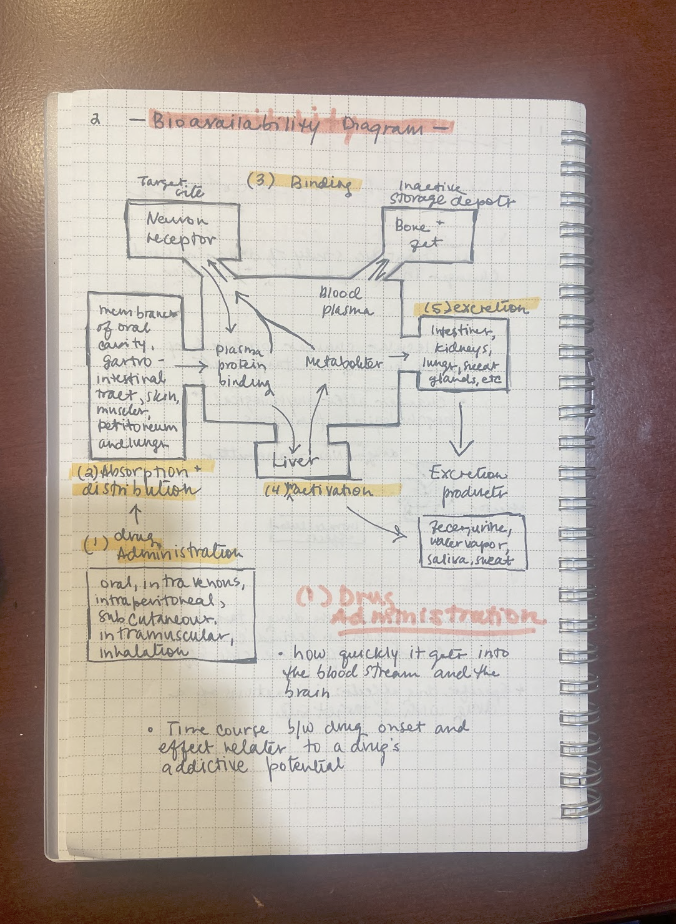 2 — Bioavailability Diagram —
(3.) Binding
Target
site
Neuron
receptor
Inactive
storage depots
Bone +
fat
Blood
plasma
membranes
of oral
cavity,
gastro-
intestinal
tract, skin,
muscles,
peritoneum
and lungs
Plasma
protein
binding
Metabolites
(5) excretion
Intestines,
kidneys,
lungs, sweat
glands, etc
Liver
(2) Absorption +
distribution
(4) activation
Excretion
products
feces, urine,
water vapor,
saliva, sweat
(1) drug
Administration
oral, intravenous,
intraperitoneal,
subcutaneous,
intramuscular,
inhalation
(1) Drug
Administration
• how quickly it gets into
the blood stream and the
brain
• Time course b/w drug onset and
effect relates to a drug's
addictive potential